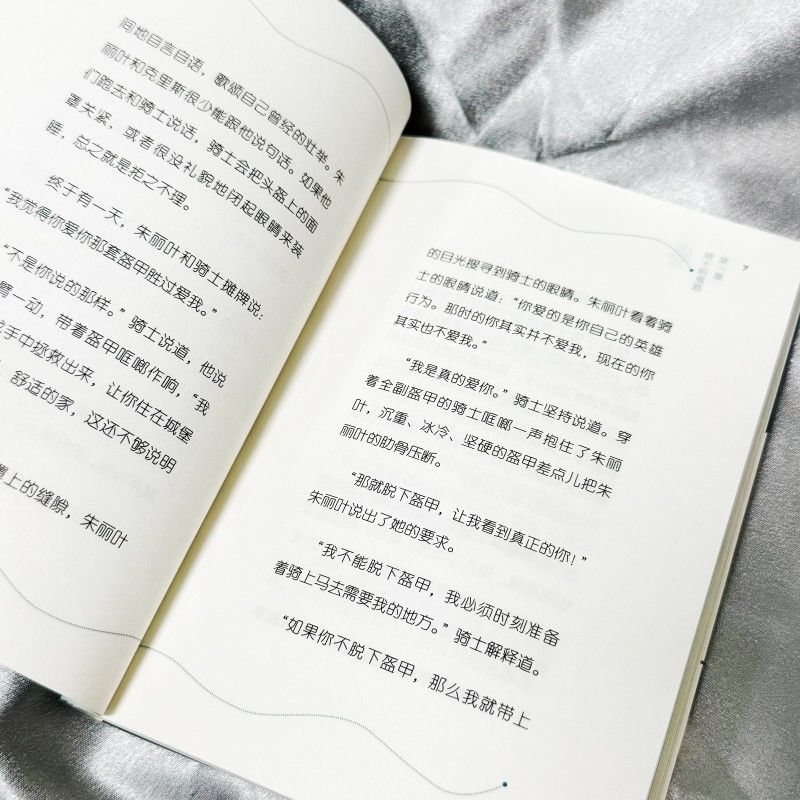 间地自言自语，歌颂自己曾经的壮举。朱
丽叶和克里斯很少能跟他说句话。如果他
们跑去和骑士说话，骑士会把头盔上的面
罩关紧，或者很没礼貌地闭起眼睛来装
睡，总之就是拒之不理。
终于有一天，朱丽叶和骑士摊牌说：
“我觉得你爱你那套盔甲胜过爱我。”
“不是你说的那样。”骑士说道，他说
一动，带着盔甲哐啷作响，“我
手中拯救出来，让你住在城堡
舒适的家，这还不够说明
上的缝隙，朱丽叶
7
的目光搜寻到骑士的眼睛。朱丽叶看着骑
士的眼睛说道：“你爱的是你自己的英雄
行为。那时的你其实并不爱我，现在的你
其实也不爱我。”
“我是真的爱你。”骑士坚持说道。穿
着全副盔甲的骑士哐啷一声抱住了朱丽
叶，沉重、冰冷、坚硬的盔甲差点儿把朱
丽叶的肋骨压断。
“那就脱下盔甲，让我看到真正的你！”
朱丽叶说出了她的要求。
“我不能脱下盔甲，我必须时刻准备
着骑上马去需要我的地方。”骑士解释道。
“如果你不脱下盔甲，那么我就带上